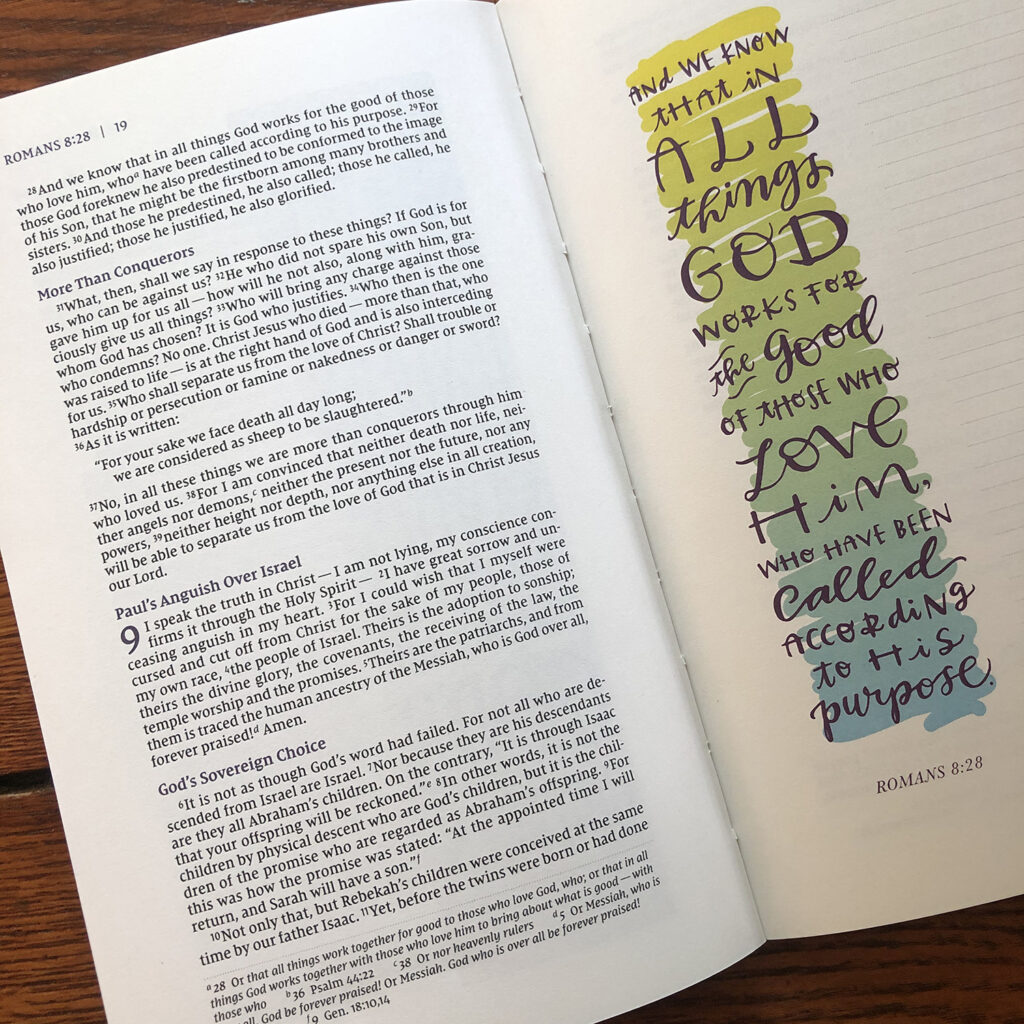 ROMANS 8:28 | 19
28 And we know that in all things God works for the good of those
who love him, who a have been called according to his purpose. 29 For
those God foreknew he also predestined to be conformed to the image
of his Son, that he might be the firstborn among many brothers and
sisters. 30 And those he predestined, he also called; those he called, he
also justified; those he justified, he also glorified.
More Than Conquerors
31 What, then, shall we say in response to these things? If God is for
us, who can be against us? 32 He who did not spare his own Son, but
gave him up for us all — how will he not also, along with him, gra-
ciously give us all things? 33 Who will bring any charge against those
whom God has chosen? It is God who justifies. 34 Who then is the one
who condemns? No one. Christ Jesus who died — more than that, who
was raised to life — is at the right hand of God and is also interceding
for us. 35 Who shall separate us from the love of Christ? Shall trouble or
hardship or persecution or famine or nakedness or danger or sword?
36 As it is written:
“For your sake we face death all day long;
we are considered as sheep to be slaughtered.” b
37 No, in all these things we are more than conquerors through him
who loved us. 38 For I am convinced that neither death nor life, nei-
ther angels nor demons, c neither the present nor the future, nor any
powers, 39 neither height nor depth, nor anything else in all creation,
will be able to separate us from the love of God that is in Christ Jesus
our Lord.
Paul’s Anguish Over Israel
9 I speak the truth in Christ — I am not lying, my conscience con-
firms it through the Holy Spirit — 2 I have great sorrow and un-
ceasing anguish in my heart. 3 For I could wish that I myself were
cursed and cut off from Christ for the sake of my people, those of
my own race, 4 the people of Israel. Theirs is the adoption to sonship;
theirs the divine glory, the covenants, the receiving of the law, the
temple worship and the promises. 5 Theirs are the patriarchs, and from
them is traced the human ancestry of the Messiah, who is God over all,
forever praised! d Amen.
God’s Sovereign Choice
6 It is not as though God’s word had failed. For not all who are de-
scended from Israel are Israel. 7 Nor because they are his descendants
are they all Abraham’s children. On the contrary, “It is through Isaac
that your offspring will be reckoned.” e 8 In other words, it is not the
children by physical descent who are God’s children, but it is the chil-
dren of the promise who are regarded as Abraham’s offspring. 9 For
this was how the promise was stated: “At the appointed time I will
return, and Sarah will have a son.” f
10 Not only that, but Rebekah’s children were conceived at the same
time by our father Isaac. 11 Yet, before the twins were born or had done
a 28 Or that all things work together for good to those who love God, who; or that in all
things God works together with those who love him to bring about what is good — with
those who b 36 Psalm 44:22 c 38 Or nor heavenly rulers d 5 Or Messiah, who is
all. God be forever praised! Or Messiah. God who is over all be forever praised!
f 9 Gen. 18:10,14
AND WE KNOW
THAT IN
ALL
things
GOD
WORKS FOR
the good
OF THOSE WHO
LOVE
HIM,
WHO HAVE BEEN
called
ACCORDING
to HIS
purpose.
ROMANS 8:28